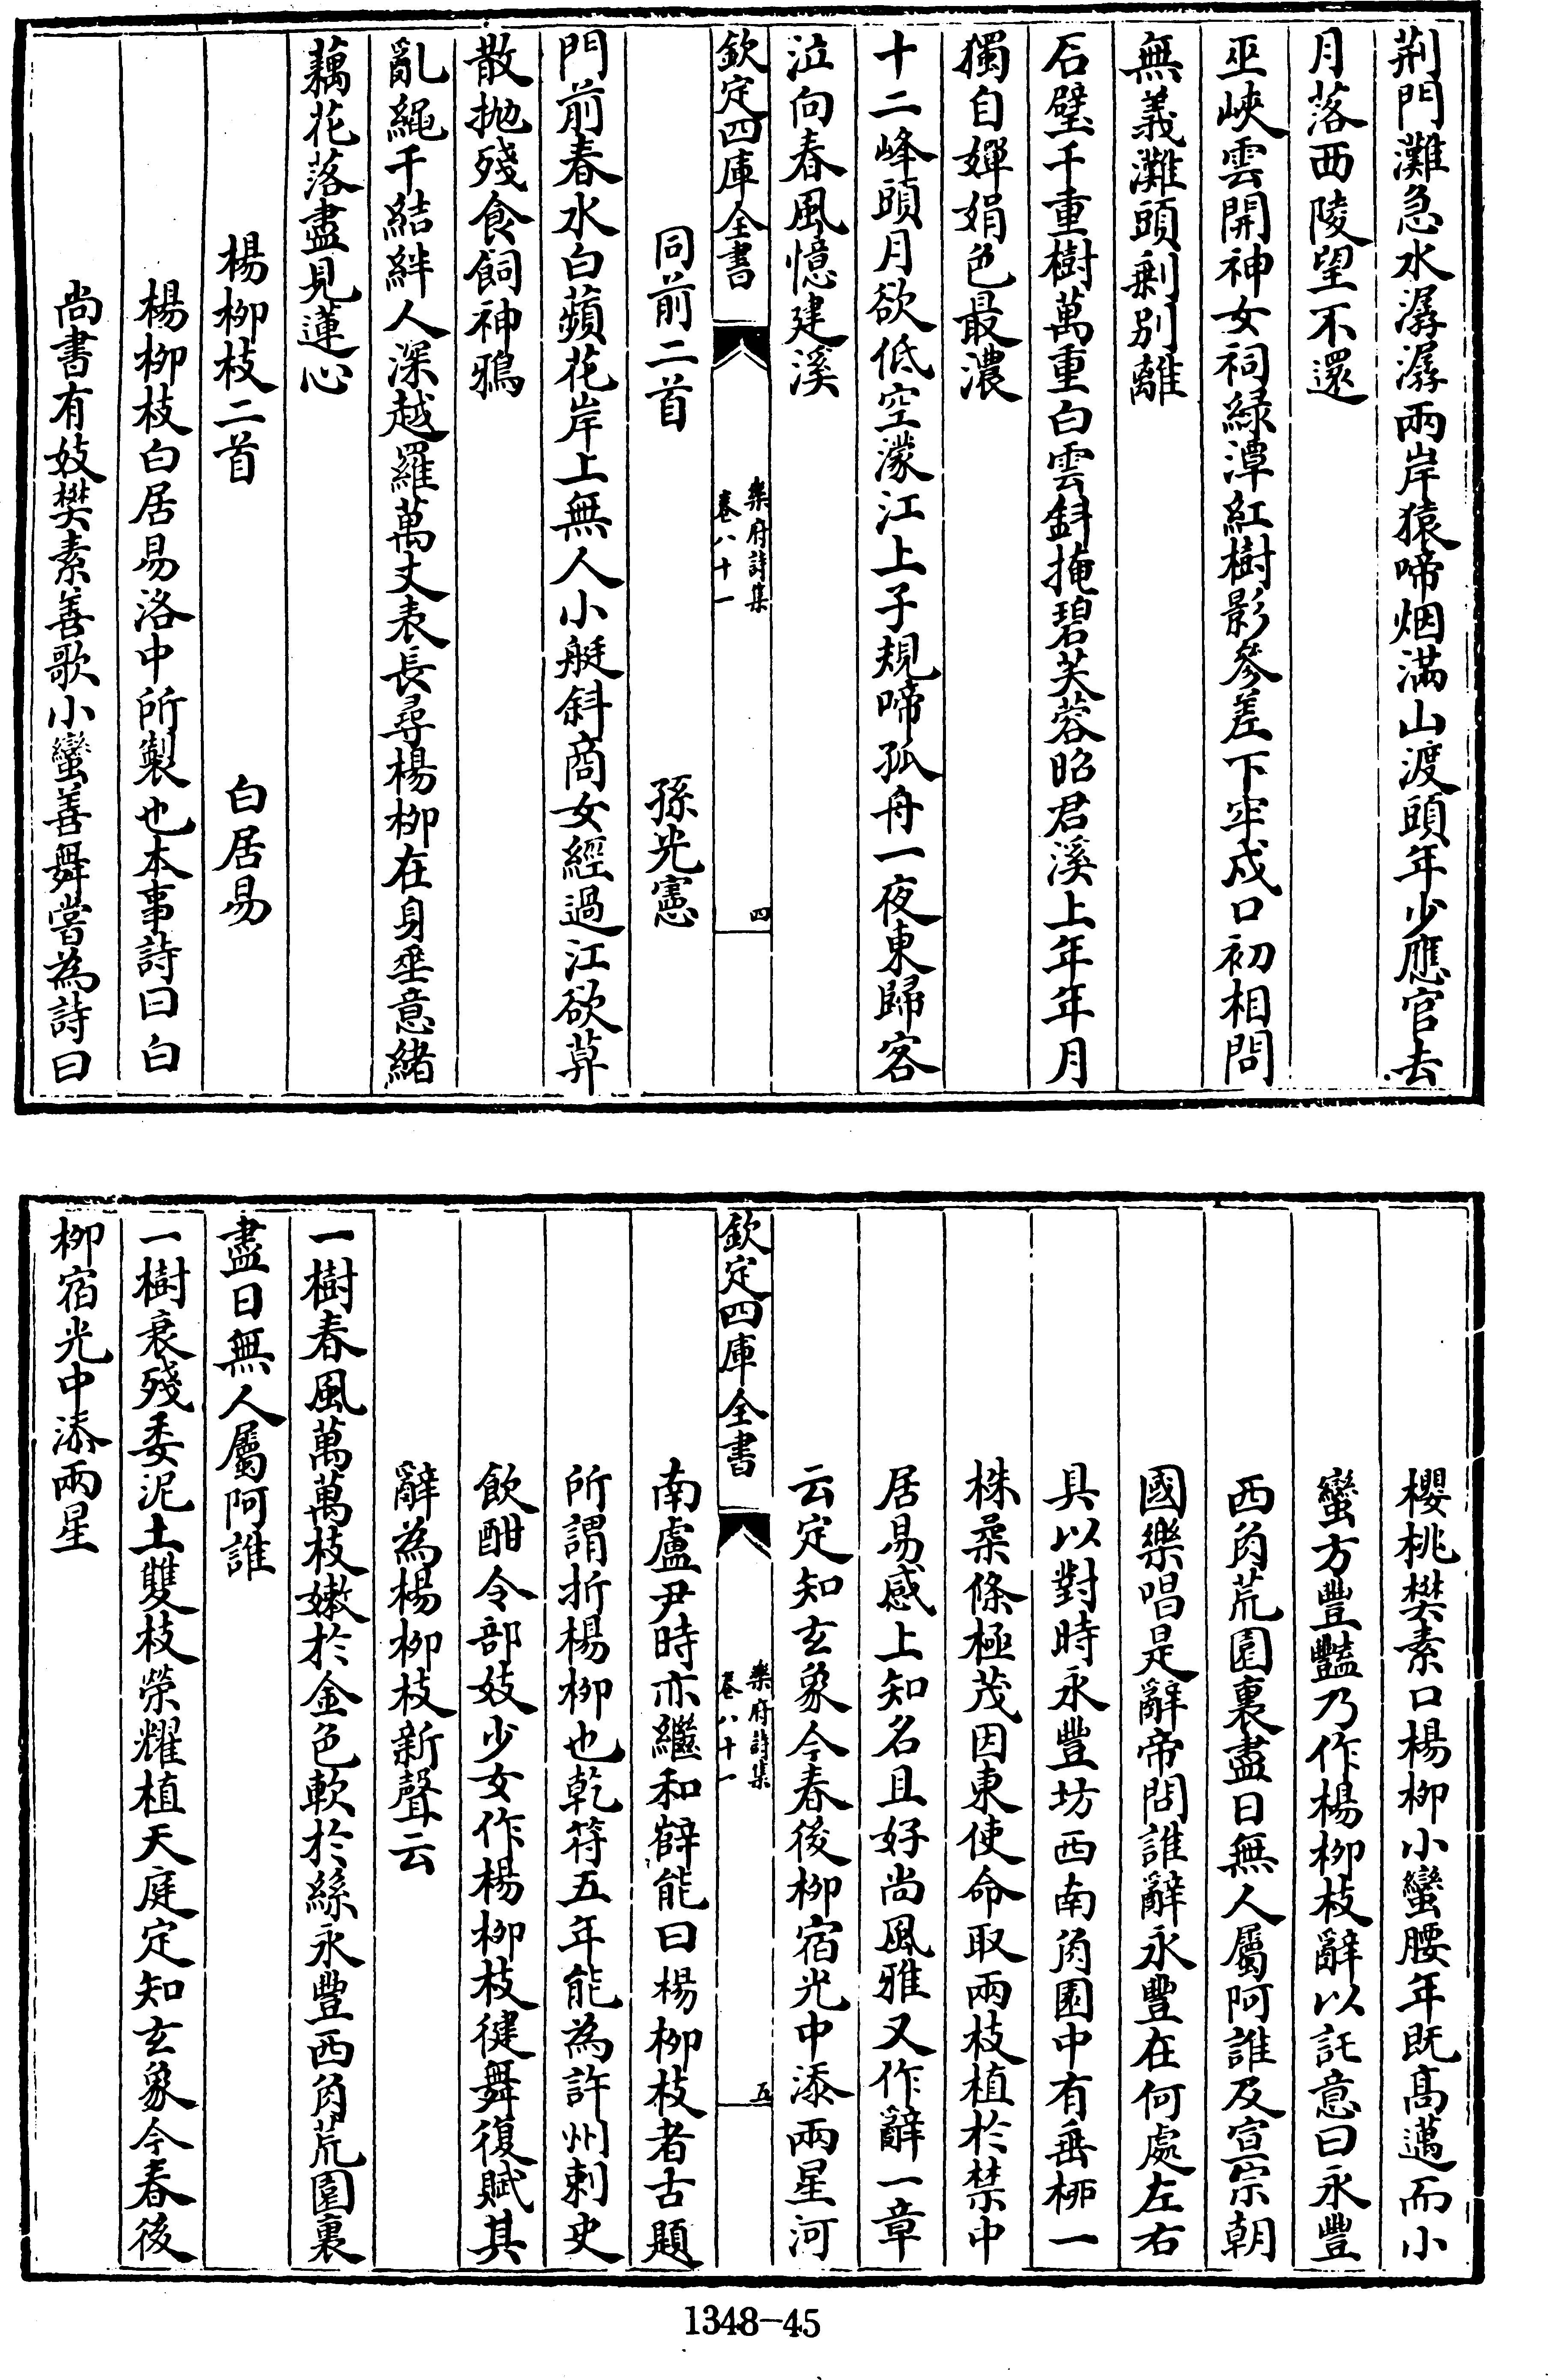 荆門灘急水潺潺兩岸猿啼烟滿山渡頭年少應官去
月落西陵望不還
巫峽雲開神女祠緑潭紅樹影參差下牢戍口初相問
無義灘頭剰别離
石壁千重樹萬重白雲斜掩碧芙蓉昭君溪上年年月
獨自嬋娟色最濃
十二峰頭月欲低空濛江上子規啼孤舟一夜東歸客
泣向春風憶建溪
欽定四庫全書
樂府詩集
卷八十一
四
同前二首 孫光憲
門前春水白蘋花岸上無人小艇斜商女經過江欲暮
散抛殘食飼神鴉
亂繩千結絆人深越羅萬丈表長尋楊柳在身垂意緒
藕花落盡見蓮心
楊柳枝二首 白居易
楊柳枝白居易洛中所製也本事詩曰白
尚書有妓樊素善歌小蠻善舞嘗為詩曰
櫻桃樊素口楊柳小蠻腰年既髙邁而小
蠻方豐豔乃作楊柳枝辭以託意曰永豐
西角荒園裏盡日無人屬阿誰及宣宗朝
國樂唱是辭帝問誰辭永豐在何處左右
具以對時永豐坊西南角園中有垂栁一
株柔條極茂因東使命取兩枝植於禁中
居易感上知名且好尚風雅又作辭一章
云定知玄象今春後柳宿光中添兩星河
欽定四庫全書
樂府詩集
卷八十一
五
南盧尹時亦繼和薛能曰楊柳枝者古題
所謂折楊柳也乾符五年能為許州刺史
飲酣令部妓少女作楊柳枝健舞復賦其
辭為楊柳枝新聲云
一樹春風萬萬枝嫩於金色軟於絲永豐西角荒園裏
盡日無人屬阿誰
一樹衰殘委泥土雙枝榮耀植天庭定知玄象今春後
柳宿光中添兩星
1348-45